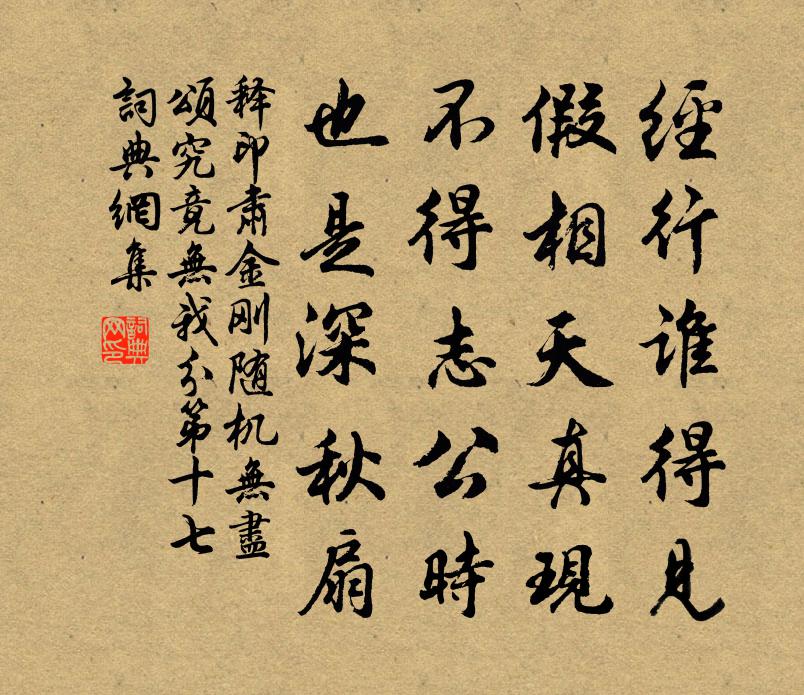 經行誰得見
假相天真現
不得志公時
也是深秋扇
释印肅金刚随机無盡
頌究竟無我分第十七
詞典網集
詞典网印